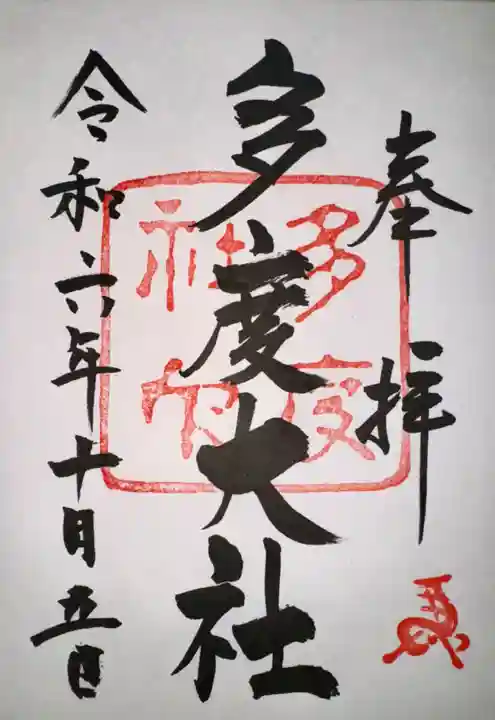 奉拝
多度大社
令和六年十月五日
多度